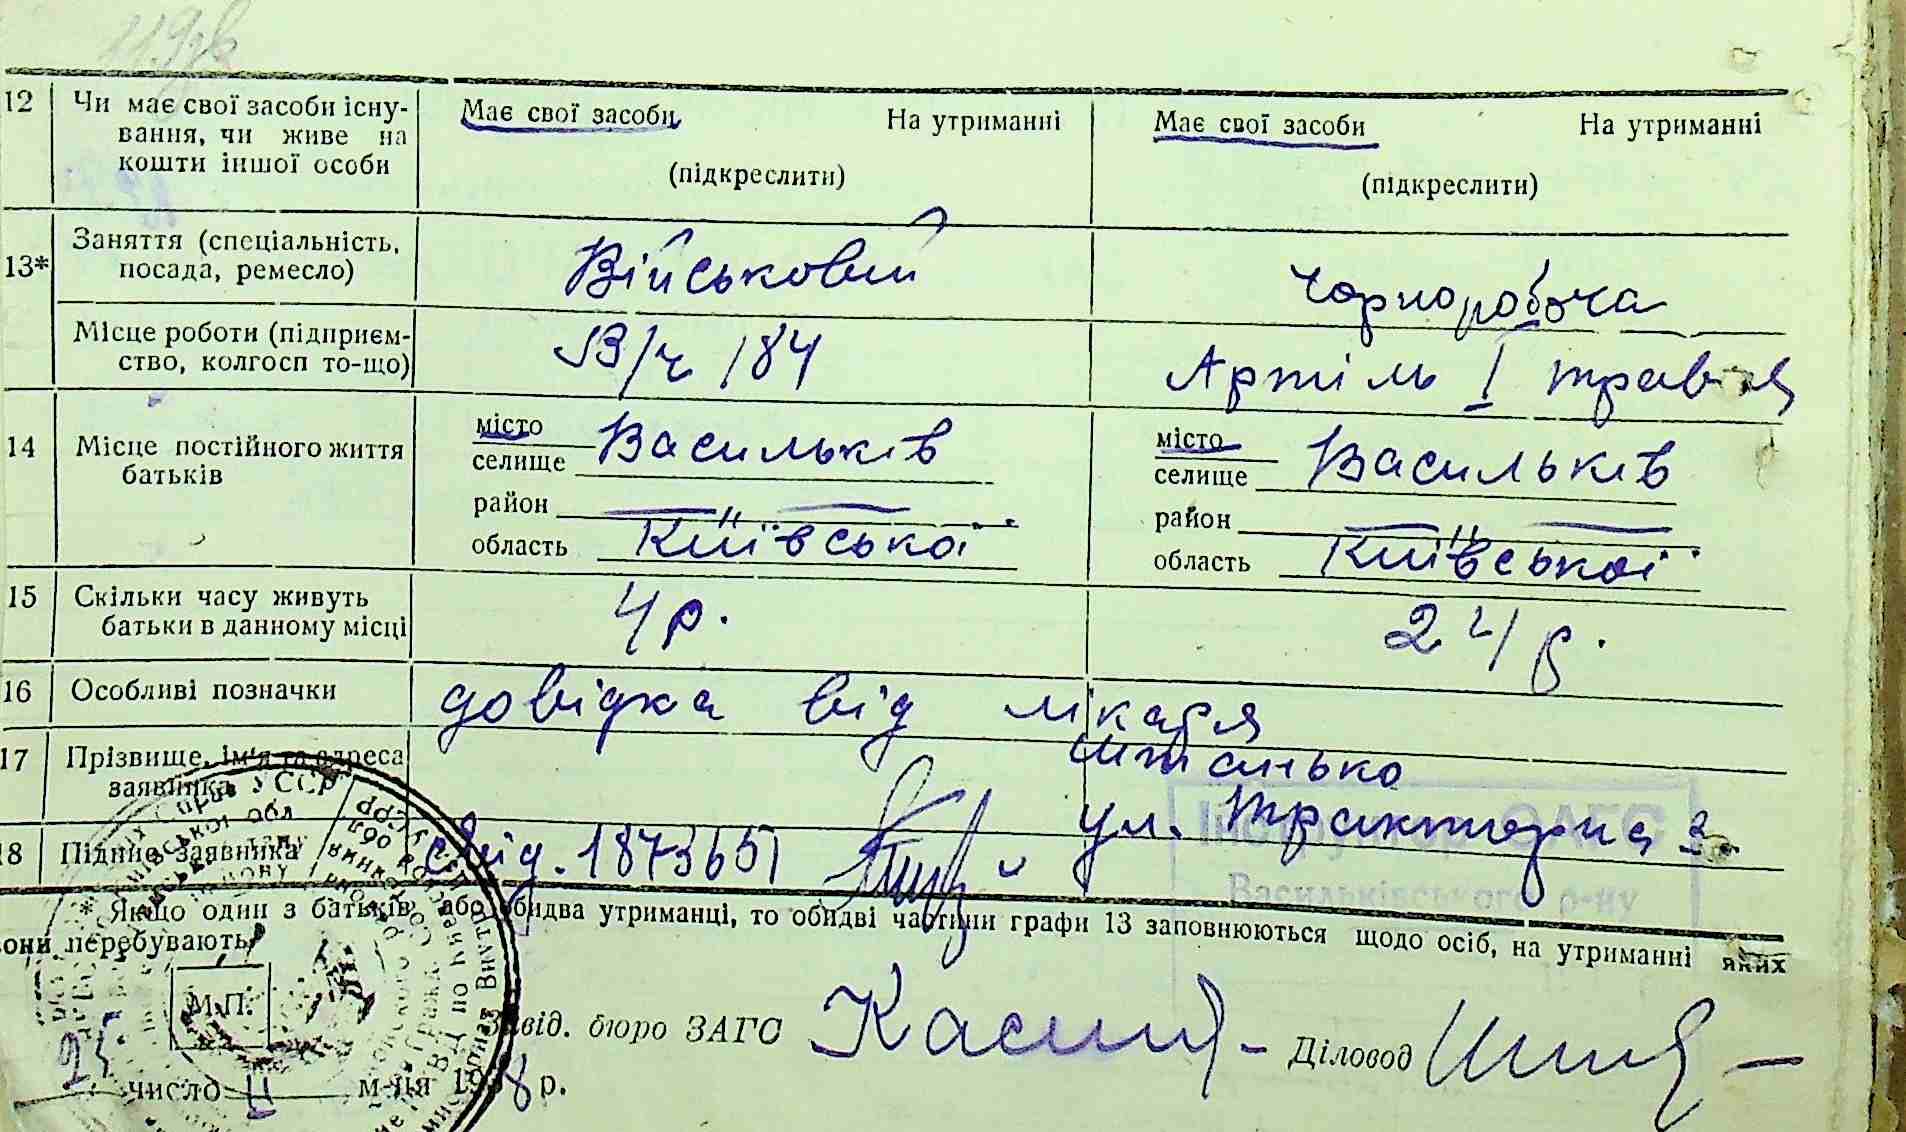 119зв
12 Чи має свої засоби існу- Має свої засоби На утриманні Має свої засоби На утриманні
вання, чи живе на
кошти іншої особи (підкреслити) (підкреслити)
13* Заняття (спеціальність, Військовий Чорноробоча
посада, ремесло)
Місце роботи (підприєм- В/ч 184 Артіль I травня
ство, колгосп то-що)
14 Місце постійного життя місто Васильків місто Васильків
батьків селище селище
район район
область Київської область Київської
15 Скільки часу живуть 4 р. 24 р.
батьки в данному місці
16 Особливі позначки довідка від лікаря
17 Прізвище, ім'я та адреса
заявника ул. Тракторна 3
18 Підпис заявника свід. 1873651
Інструктор ЗАГС
Васильківського р-ну
* Якщо один з батьків або обидва утриманці, то обидві частини графи 13 заповнюються щодо осіб, на утриманні яких
вони перебувають
М.П.
Завід. бюро ЗАГС Діловод
25 число II м-ця 1938 р.